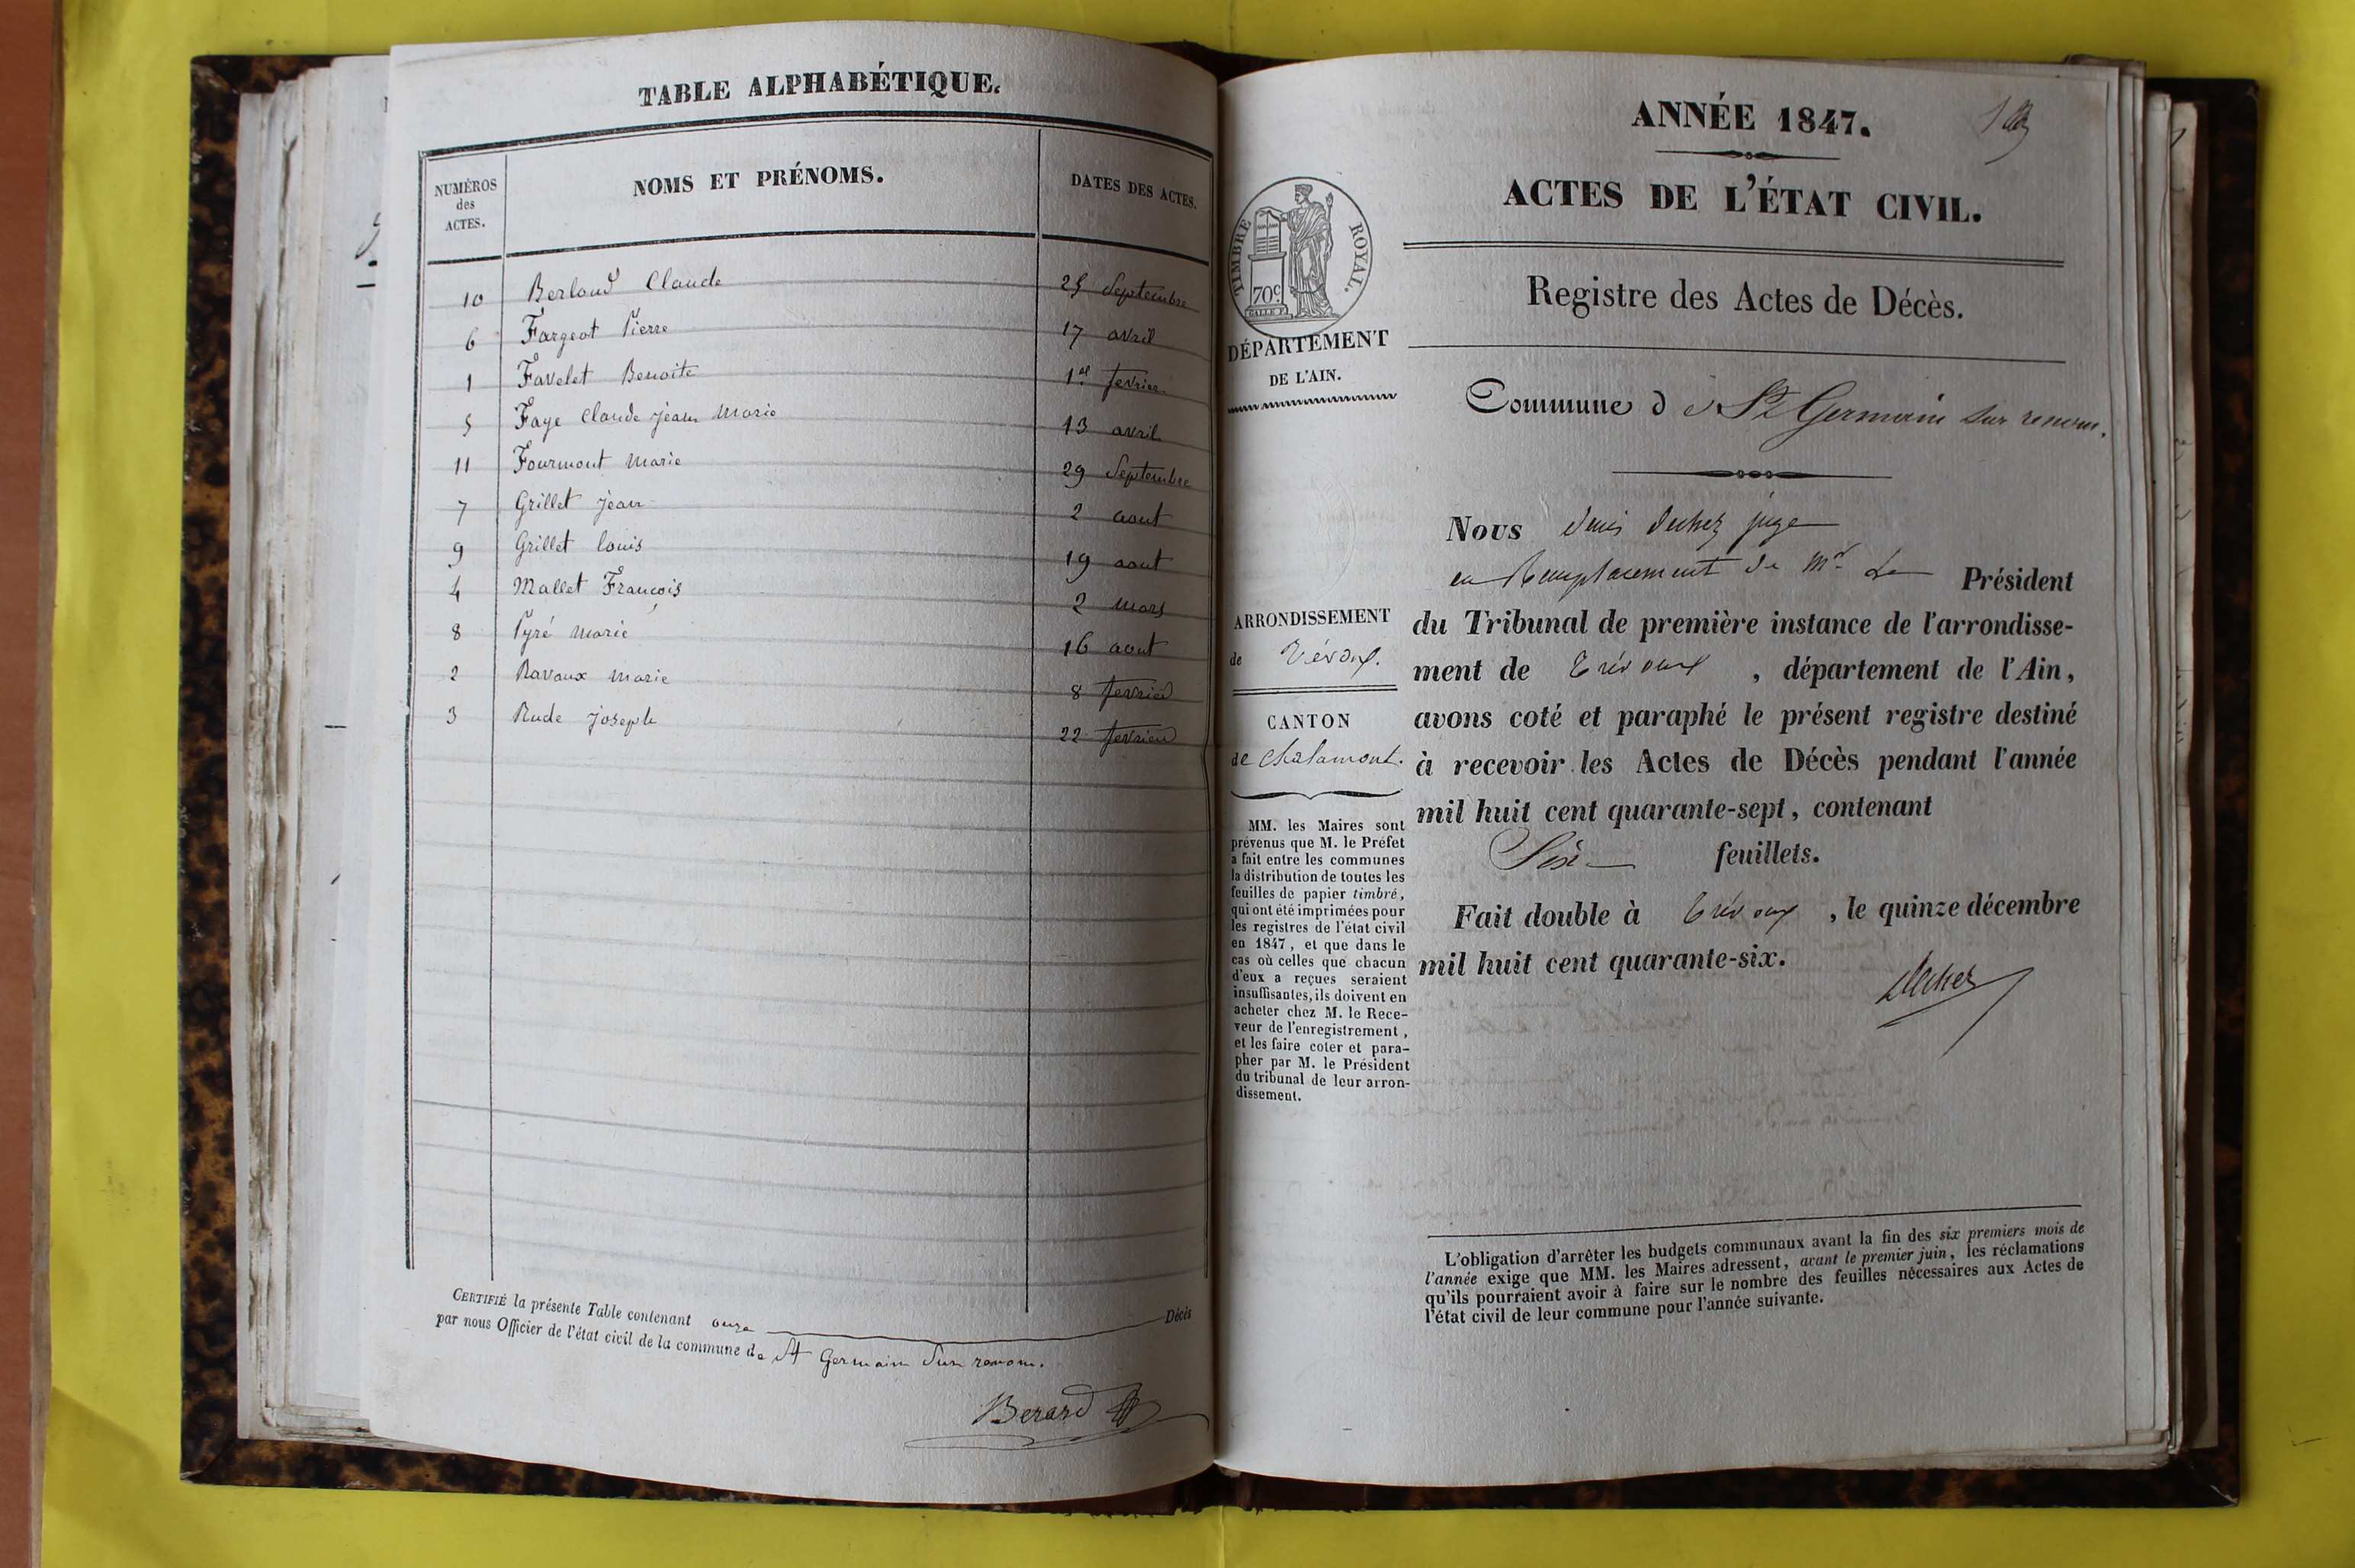 TABLE ALPHABÉTIQUE.
NUMÉROS des ACTES. NOMS ET PRÉNOMS. DATES DES ACTES.
10 Berloud Claude 25 Septembre
6 Fargeot Pierre 17 avril
1 Favelet Benoite 1er fevrier
5 Faye Claude jean Marie 13 avril
11 Fourmont Marie 29 Septembre
7 Grillet jean 2 aout
9 Grillet louis 19 aout
4 Mallet François 2 mars
8 Pyré Marie 16 aout
2 Ravaux Marie 8 fevrier
3 Rude joseph 22 fevrier
CERTIFIÉ la présente Table contenant onze Décès
par nous Officier de l'état civil de la commune de St Germain Sur renom.
Berard
ANNÉE 1847.
ACTES DE L'ÉTAT CIVIL.
Registre des Actes de Décès.
TIMBRE ROYAL.
70c
DÉPARTEMENT
DE L'AIN.
Commune de St Germain sur renom.
ARRONDISSEMENT
de Trévoux.
CANTON
de Chalamont.
MM. les Maires sont
prévenus que M. le Préfet
a fait entre les communes
la distribution de toutes les
feuilles de papier timbré,
qui ont été imprimées pour
les registres de l'état civil
en 1847, et que dans le
cas où celles que chacun
d'eux a reçues seraient
insuffisantes, ils doivent en
acheter chez M. le Rece-
veur de l'enregistrement,
et les faire coter et para-
pher par M. le Président
du tribunal de leur arron-
dissement.
Nous Denis Duchez juge
en Remplacement de Mr Le Président
du Tribunal de première instance de l'arrondisse-
ment de Trévoux, département de l'Ain,
avons coté et paraphé le présent registre destiné
à recevoir les Actes de Décès pendant l'année
mil huit cent quarante-sept, contenant
Six feuillets.
Fait double à Trévoux, le quinze décembre
mil huit cent quarante-six.
Duchez
L'obligation d'arrêter les budgets communaux avant la fin des six premiers mois de
l'année exige que MM. les Maires adressent, avant le premier juin, les réclamations
qu'ils pourraient avoir à faire sur le nombre des feuilles nécessaires aux Actes de
l'état civil de leur commune pour l'année suivante.